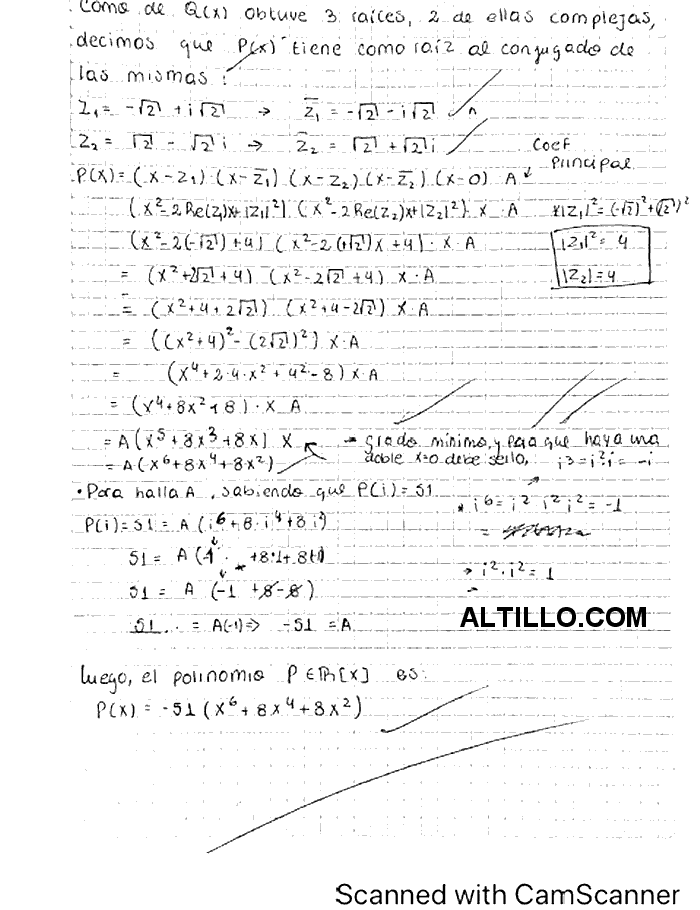 Como de Q(x) obtuve 3 raíces, 2 de ellas complejas,
decimos que P(x) tiene como raíz al conjugado de
las mismas:
Z₁ = -√2 + i√2 → Z̄₁ = -√2 - i√2
Z₂ = √2 - √2 i → Z̄₂ = √2 + √2 i
Coef
Principal
P(x) = (x-Z₁) · (x-Z̄₁) · (x-Z₂) · (x-Z̄₂) · (x-0) · A
(x²-2Re(Z₁)x+|Z₁|²) · (x²-2Re(Z₂)x+|Z₂|²) · x · A *|Z₁|² = (-√2)²+(√2)²
(x²-2(-√2)+4) (x²-2(+√2)x+4) · x · A |Z₁|² = 4
= (x²+2√2+4) · (x²-2√2+4) x · A |Z₂| = 4
= (x²+4+2√2) · (x²+4-2√2) x · A
= ((x²+4)²-(2√2)²) x · A
= (x⁴+2·4·x²+4²-8) x · A
= (x⁴+8x²+8) · x A
= A(x⁵+8x³+8x) x → grado mínimo, y para que haya una
= A(x⁶+8x⁴+8x²) doble x=0 debe serlo, i³=i²·i=-i
• Para halla A, sabiendo que P(i)=51
* i⁶ = i² i² i² = -1
P(i) = 51 = A(i⁶+8·i⁴+8i²)
51 = A(-1 +8·1+8(-1)
→ i²·i² = 1
51 = A (-1 +8-8)
51 = A(-1) ⇒ -51 = A
ALTILLO.COM
Luego, el polinomio P ∈ ℝ[x] es:
P(x) = -51(x⁶+8x⁴+8x²)
Scanned with CamScanner